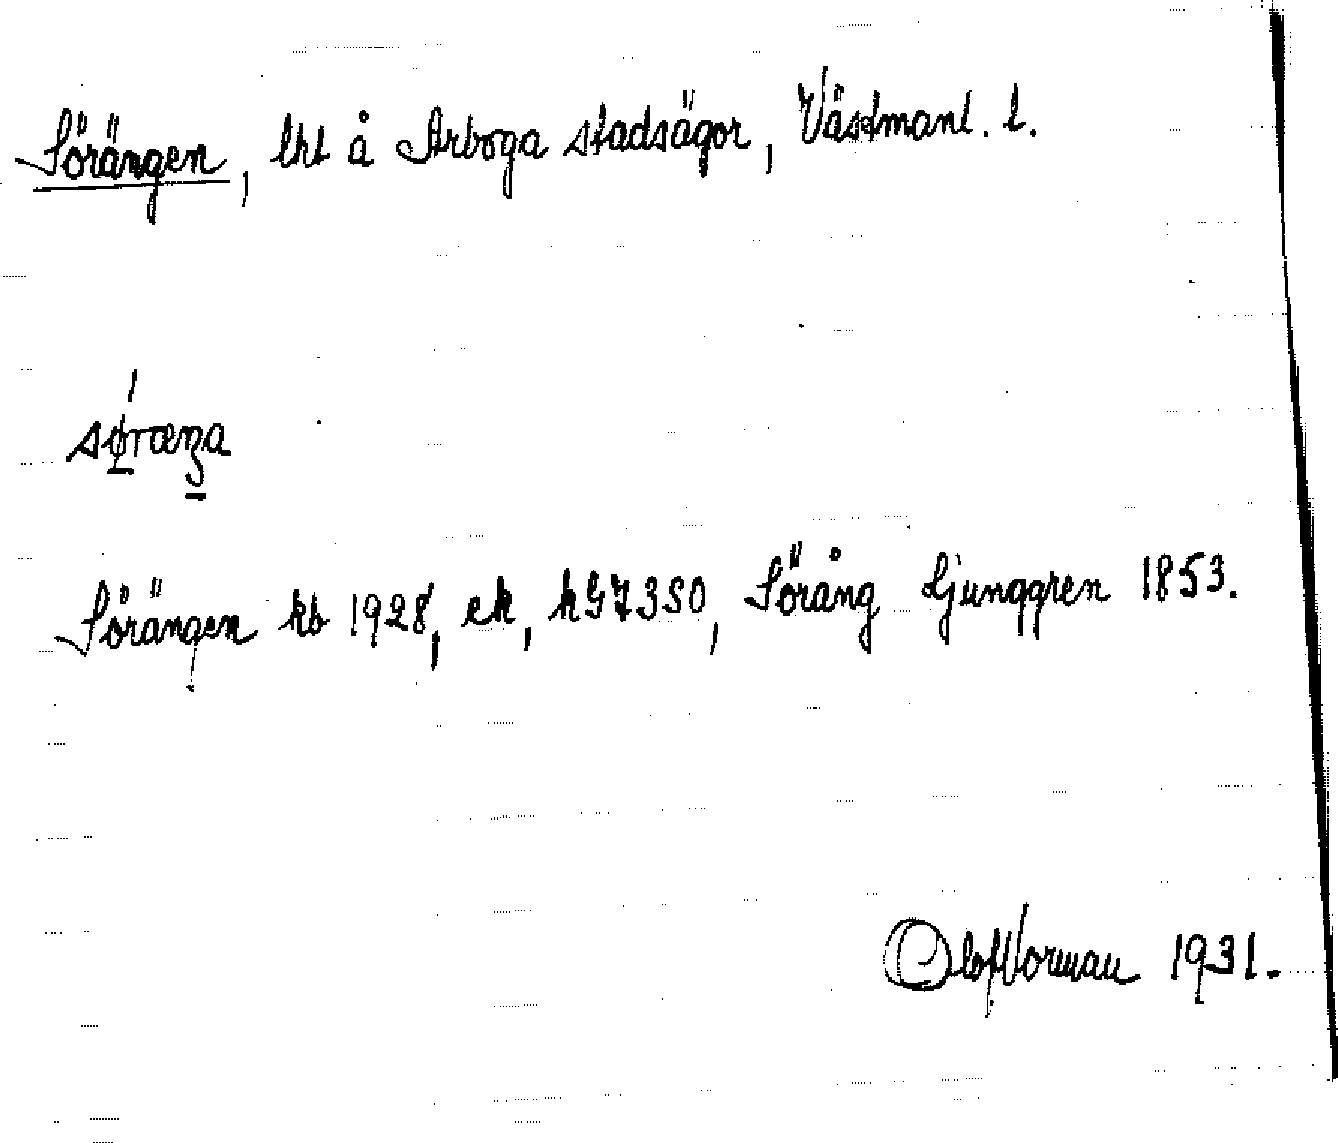 Sörängen, lht å Arboga stadsägor, Västmanl. l.
söræŋa
Sörängen kb 1928, ek, hG73SO, Söräng Ljunggren 1853.
Olof Norman 1931.